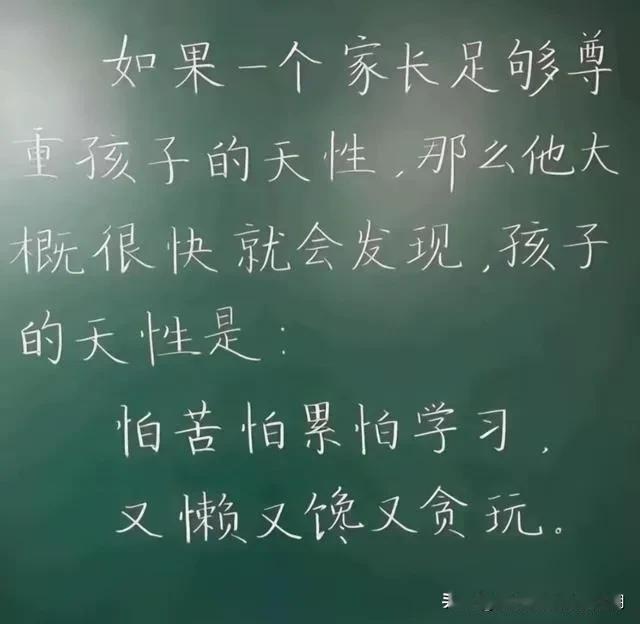 如果一个家长足够尊
重孩子的天性,那么他大
概很快就会发现,孩子
的天性是:
怕苦怕累怕学习,
又懒又馋又贪玩。